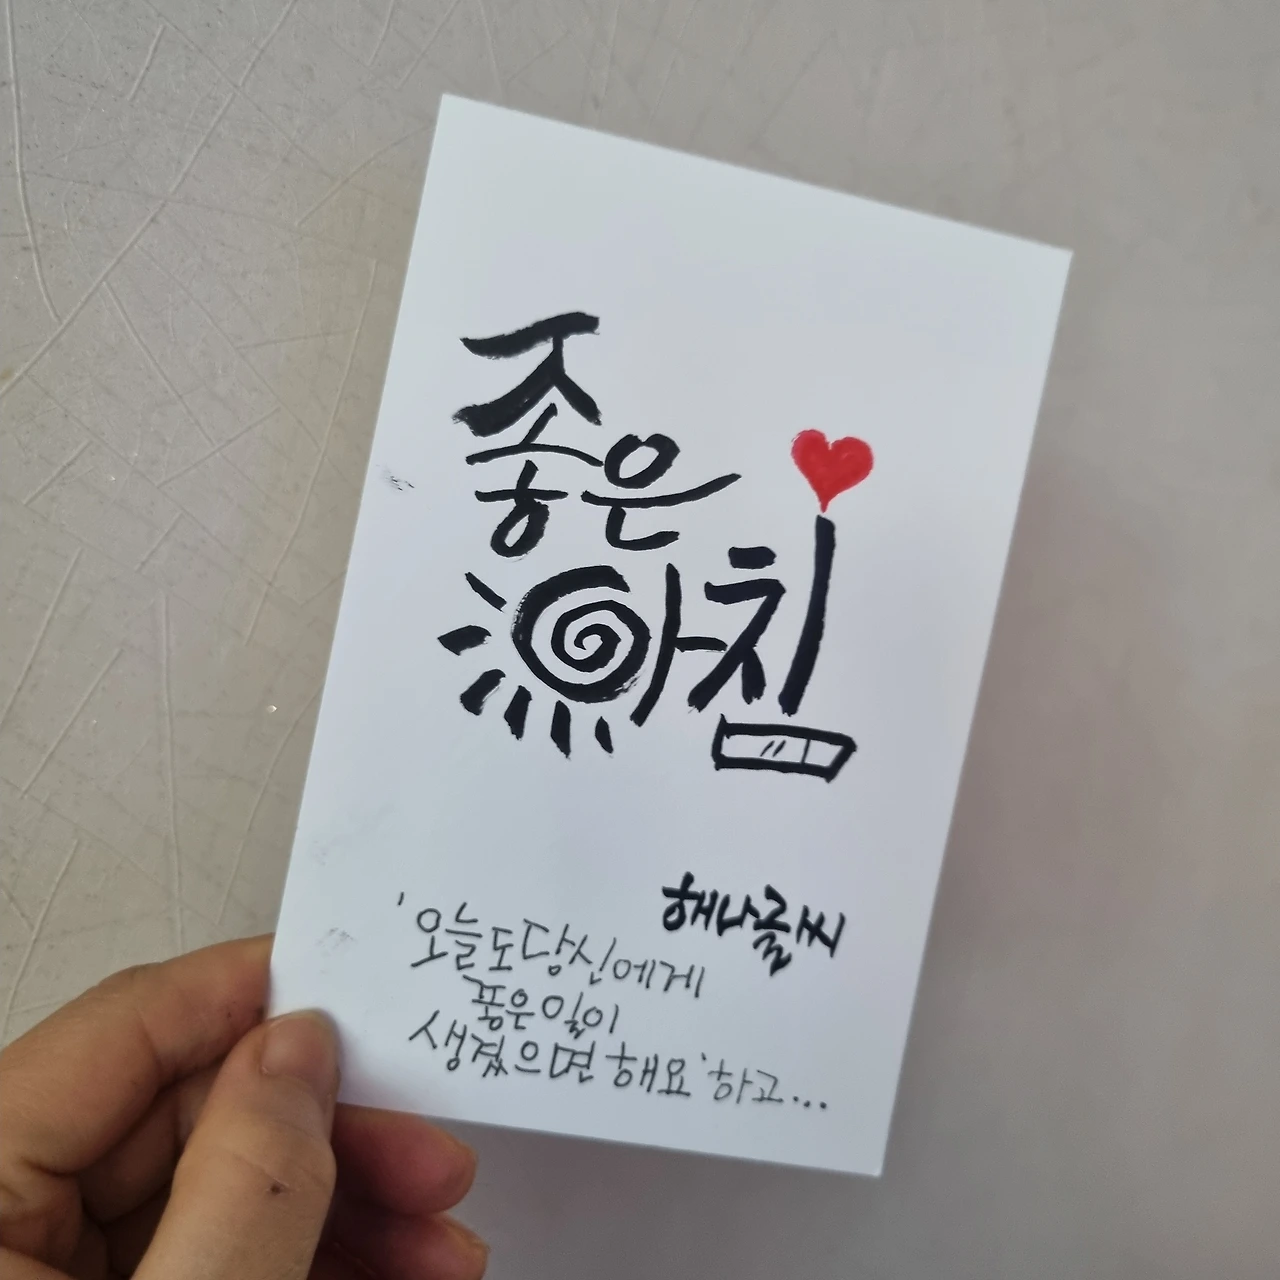 좋은
아침
해나글씨
'오늘도 당신에게
좋은 일이
생겼으면 해요.' 하고...